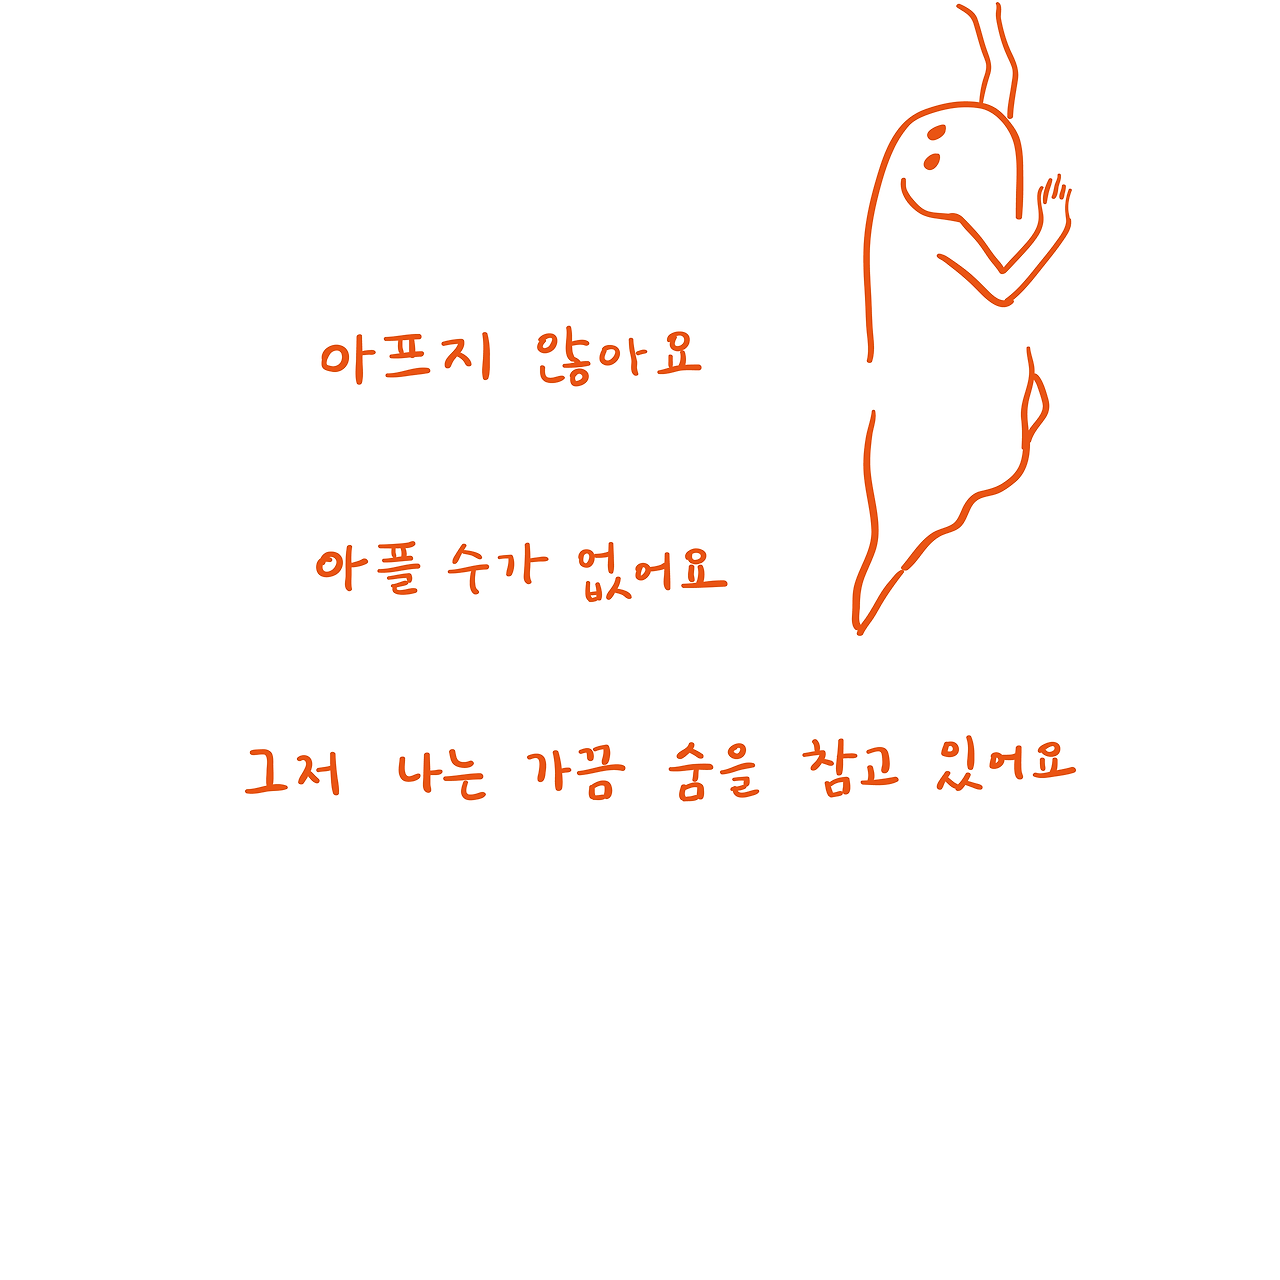 아프지 않아요
아플 수가 없어요
그저 나는 가끔 숨을 참고 있어요